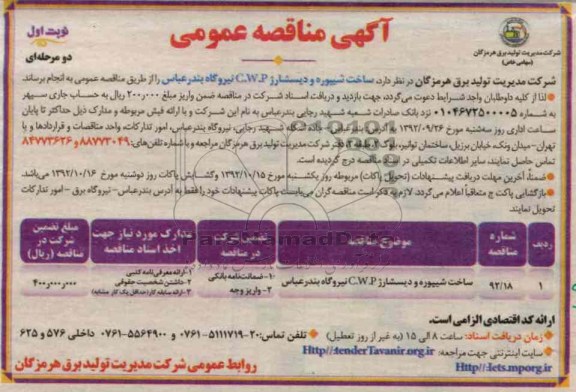 آگهی مناقصه عمومی
نوبت اول
دو مرحله‌ای
شرکت مدیریت تولید برق هرمزگان
(سهامی خاص)
شرکت مدیریت تولید برق هرمزگان در نظر دارد، ساخت شیپوره و دیسشارژ C.W.P نیروگاه بندرعباس را از طریق مناقصه عمومی به انجام برساند.
لذا از کلیه داوطلبان واجد شرایط دعوت می‌گردد، جهت بازدید و دریافت اسناد شرکت در مناقصه ضمن واریز مبلغ ۲۰۰/۰۰۰ ریال به حساب جاری سپهر
به شماره ۰۱۰۴۶۷۲۵۰۰۰۰۵ نزد بانک صادرات شعبه شهید رجایی بندرعباس به نام این شرکت و با ارائه فیش مربوطه و مدارک ذیل حداکثر تا پایان
ساعت اداری روز سه‌شنبه مورخ ۱۳۹۲/۰۹/۲۶ به آدرس: بندرعباس - جاده اسکله شهید رجایی، نیروگاه بندرعباس، امور تدارکات، واحد مناقصات و قراردادها و یا
تهران-میدان ونک، خیابان برزیل، ساختمان توانیر، بلوک ۲ طبقه ۲، دفتر شرکت مدیریت تولید برق هرمزگان مراجعه و با شماره تلفن‌های: ۸۸۷۷۳۰۴۹ و ۸۴۷۷۳۶۲۶
تماس حاصل نمایند، سایر اطلاعات تکمیلی در اسناد مناقصه درج گردیده است.
ضمناً، آخرین مهلت دریافت پیشنهادات (تحویل پاکات) مربوطه روز یکشنبه مورخ ۱۳۹۲/۱۰/۱۵ و گشایش پاکات روز دوشنبه مورخ ۱۳۹۲/۱۰/۱۶ می‌باشد.
بازگشایی پاکت ج متعاقباً اعلام می‌گردد، لازم به ذکر است مناقصه گران می‌بایست پاکات پیشنهادات خود را فقط به آدرس بندرعباس- نیروگاه برق - امور تدارکات
تحویل نمایند.
ردیف
شماره مناقصه
موضوع مناقصه
تضمین شرکت در مناقصه
مدارک مورد نیاز جهت اخذ اسناد مناقصه
مبلغ تضمین شرکت در مناقصه (ریال)
۱
۹۲/۱۸
ساخت شیپوره و دیسشارژ C.W.P نیروگاه بندرعباس
۱-ضمانت‌نامه بانکی
۲- واریز وجه
۱-ارائه معرفی‌نامه کتبی
۲- داشتن شخصیت حقوقی
۳-ارائه سابقه کار (حداقل یک کار مشابه)
۴۰۰/۰۰۰/۰۰۰
ارائه کد اقتصادی الزامی است.
زمان دریافت اسناد: ساعت ۸ الی ۱۵ (به غیر از روز تعطیل)
تلفن تماس: ۲۰-۵۱۱۱۷۱۹-۰۷۶۱ و ۵۵۶۴۹۰۰-۰۷۶۱ داخلی ۵۷۶ و ۶۲۵
سایت اینترنتی جهت مراجعه: Http//:tenderTavanir.org.ir
Http//:iets.mporg.ir
روابط عمومی شرکت مدیریت تولید برق هرمزگان